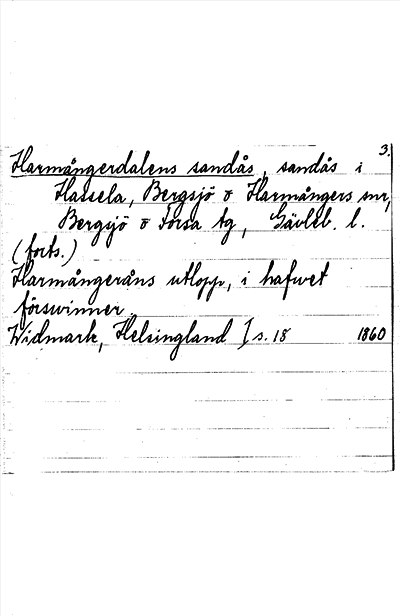 3.
Harmångerdalens sandås, sandås i
Hassela, Bergsjö o Harmångers snr,
Bergsjö o Forsa tg, Gävleb. l.
(forts.)
Harmångeråns utlopp, i hafwet
förswinner.
Widmark, Helsingland I s. 18 1860